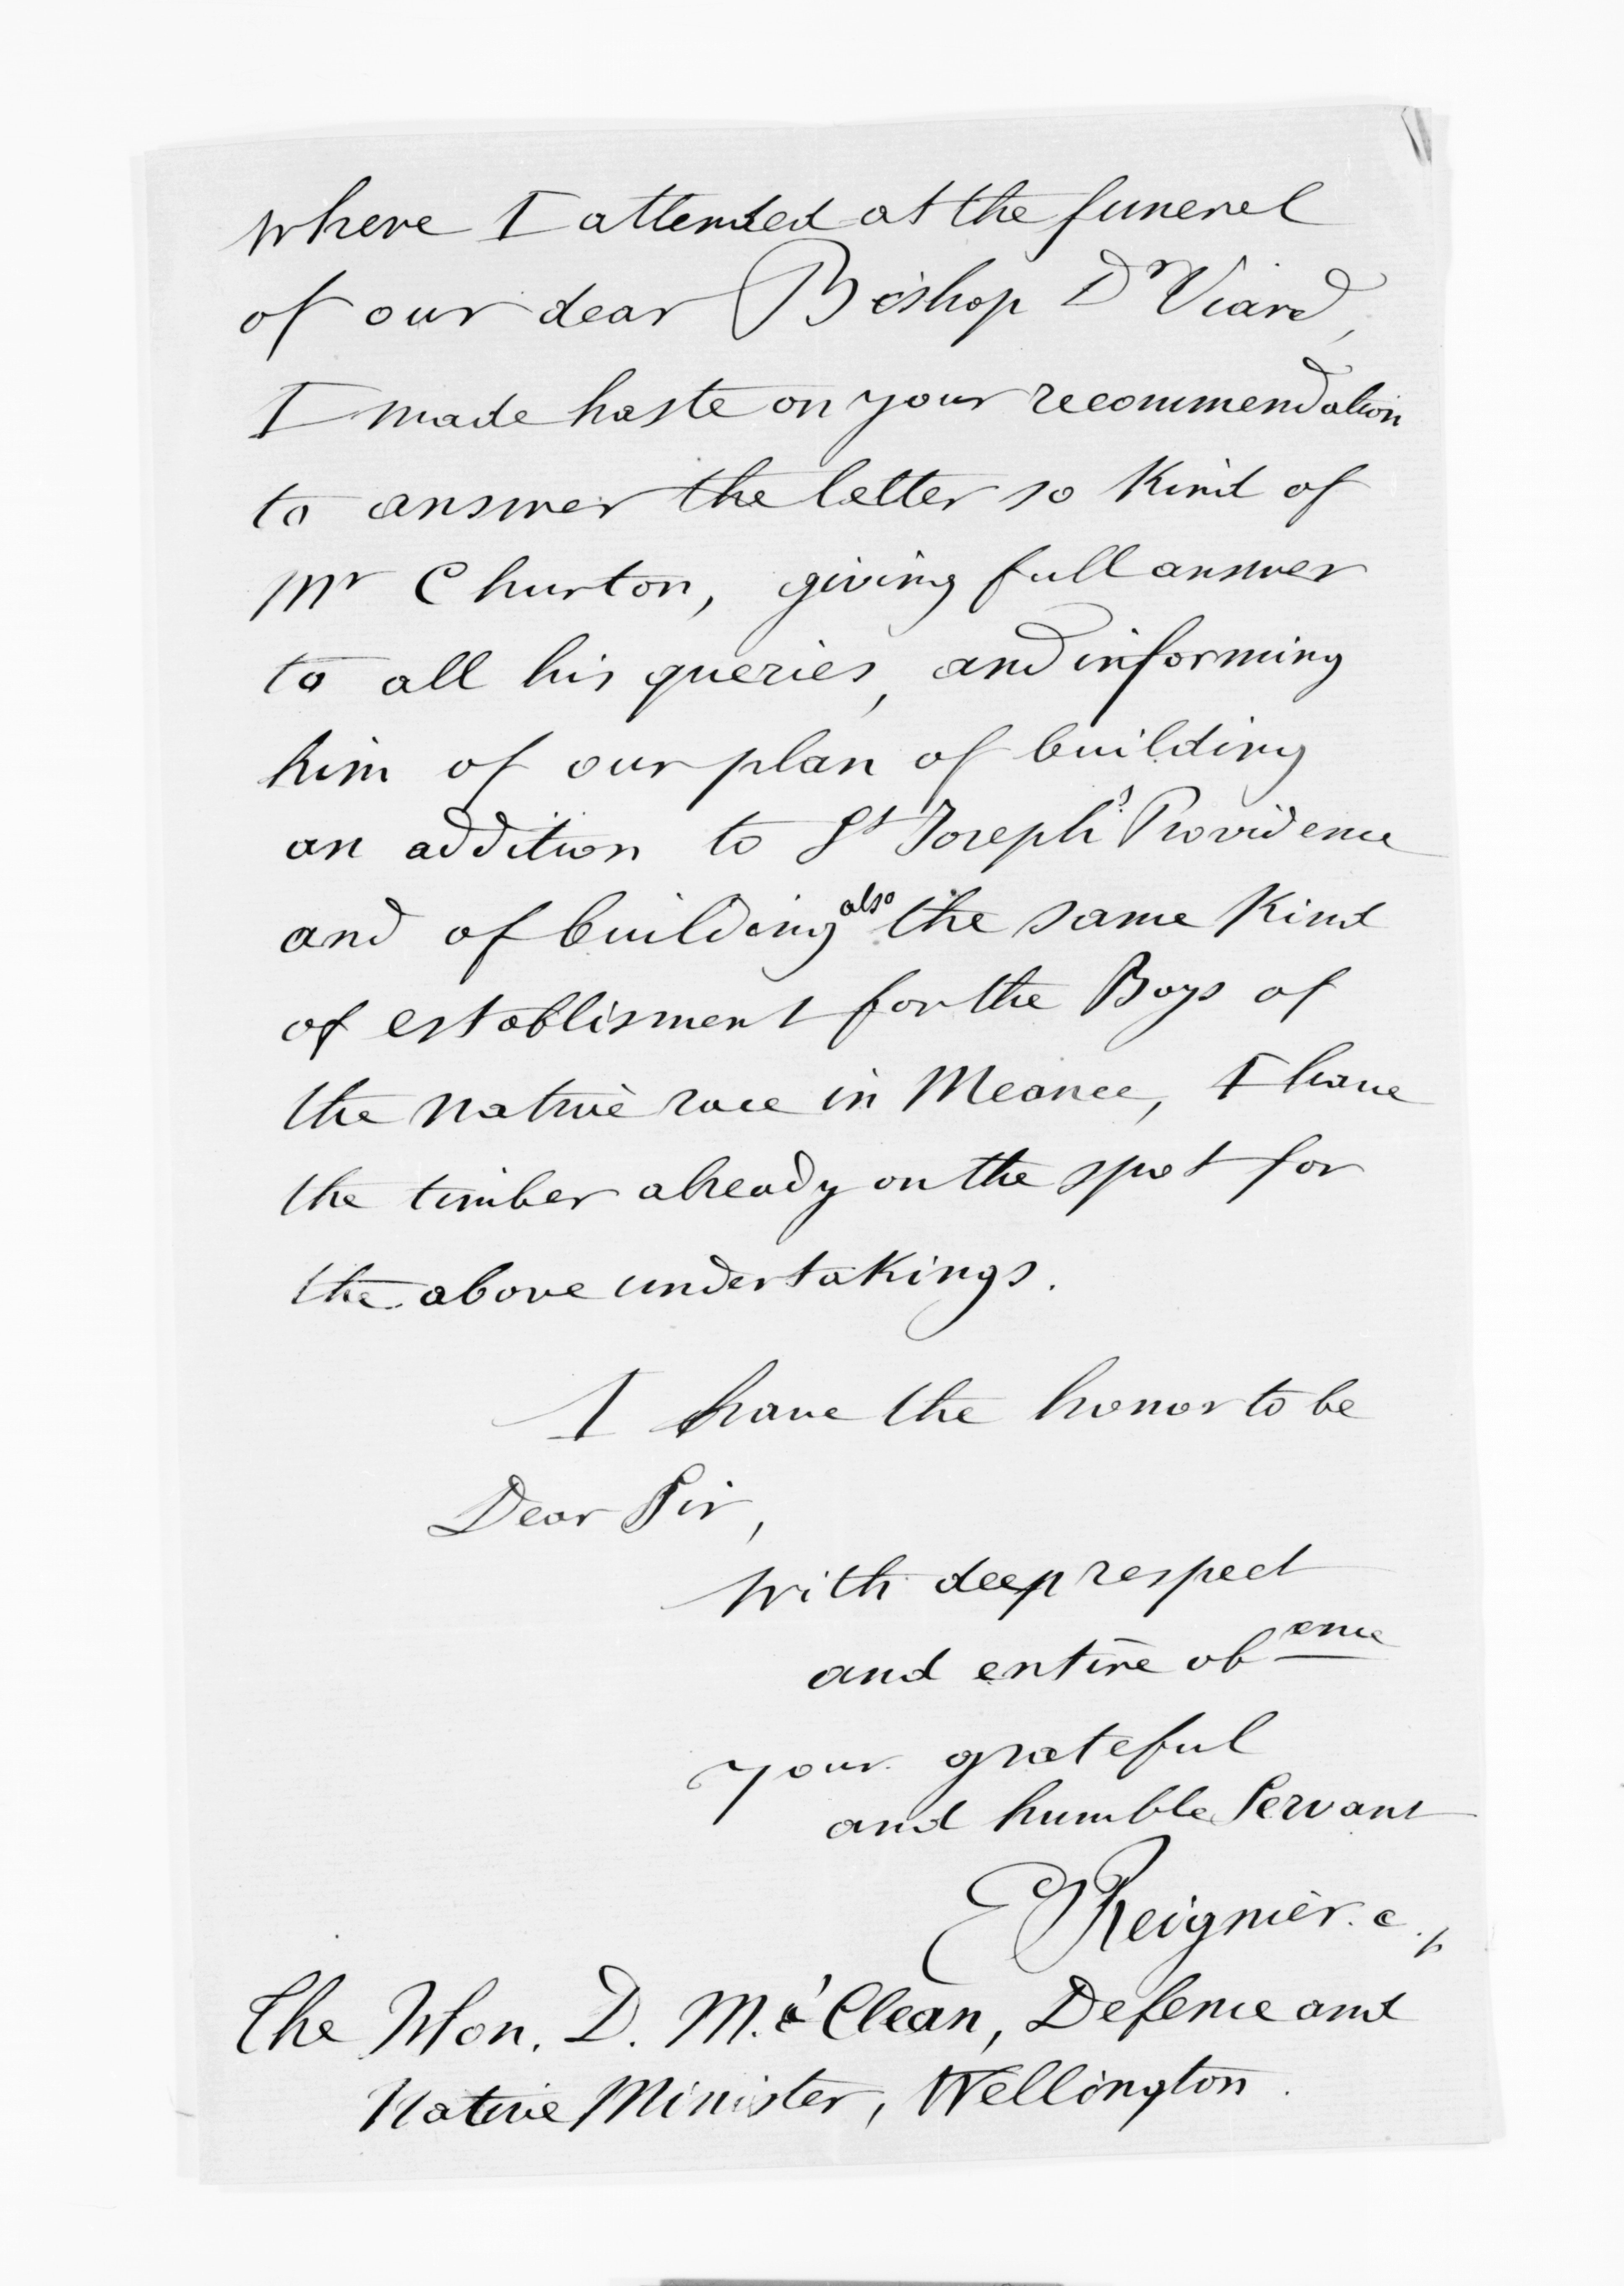 where I attended at the funerel
of our dear Bishop Dr Viard,
I made haste on your recommendation
to answer the letter so Kind of
Mr Churton, giving full answer
to all his queries, and informing
him of our plan of building
an addition to St Joseph's Providence
and of building also the same Kind
of establisment for the Boys of
the native race in Meanee, I have
the timber already on the spot for
the above undertakings.
I have the honor to be
Dear Sir,
with deep respect
and entire obence
your grateful
and humble Servant
E Reignier. c.p
The Hon. D. Mc'Clean, Defence and
Native Minister, Wellington.